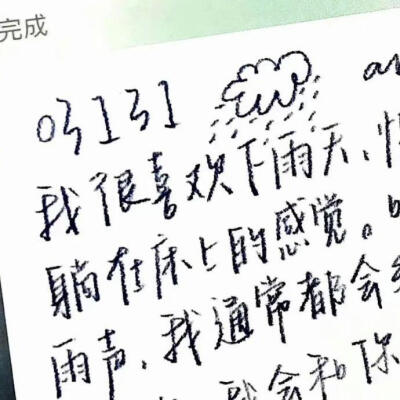 完成
哼引引
我很喜欢下雨天、
躺在床上的感觉。
雨声、我通常都会
就会和你